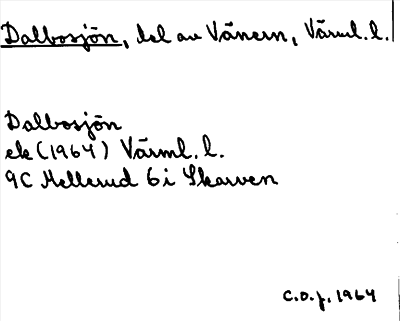 Dalbosjön, del av Vänern, Värml. l.
Dalbosjön
ek (1964) Värml. l.
9C Mellerud 6i Skarven
C.O.J. 1964